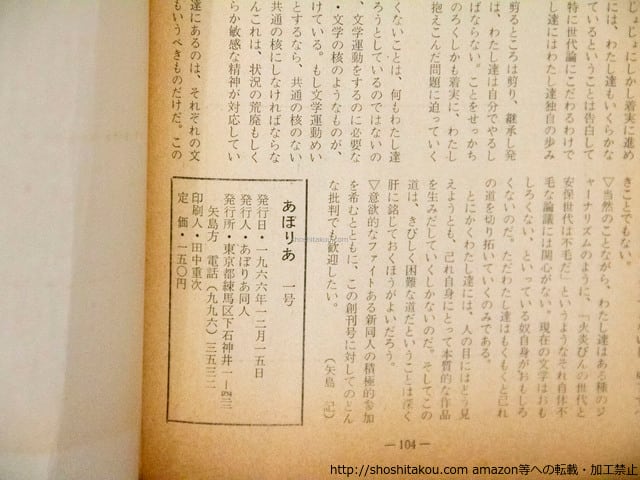 じょじょにしかし着実に進め
には、わたし達もいくらかな
ているということは告白して
特に世代論にこだわるわけで
し達にはわたし達独自の歩み
剪るところは剪り、継承し発
は、わたし達は自分でやるし
ばならない。ことをせっかち
のろくしかも着実に、わたし
抱えこんだ問題に迫っていく
くないことは、何もわたし達
ろうとしているのではないの
、文学運動をするのに必要な
・文学の核のようなものが、
けている。もし文学運動めい
とするなら、共通の核のない
共通の核にしなければならな
んこれは、状況の荒廃もしく
らか敏感な精神が対応してい
達にあるのは、それぞれの文
もいうべきものだけだ。この
きこともでもない。
▽当然のことながら、わたし達はある種のジ
ャーナリズムのように、「火炎びんの世代と
安保世代は不毛だ」というようなそれ自体不
毛な論議には関心がない。現在の文学はおも
しろくない、といっている奴自身がおもしろ
くないのだ。ただわたし達はもくもくと己れ
の道を切り拓いていくのみである。
とにかくわたし達には、人の目にはどう見
えようとも、己れ自身にとって本質的な作品
を生みだしていくしかないのだ。そしてこの
道は、きびしく困難な道だということは深く
肝に銘じておくほうがよいだろう。
▽意欲的なファイトある新同人の積極的参加
を希むとともに、この創刊号に対してのどん
な批判でも歓迎したい。
（矢島 記）
あぽりあ 一号
発行日・一九六六年一二月一五日
発行人・あぽりあ同人
発行所・東京都練馬区下石神井一ー四三
矢島方 電話（九九六）三五三二
印刷人・田中重次
定 価・一五〇円
―104―
shoshitakou.com
http://shoshitakou.com amazon等への転載・加工禁止